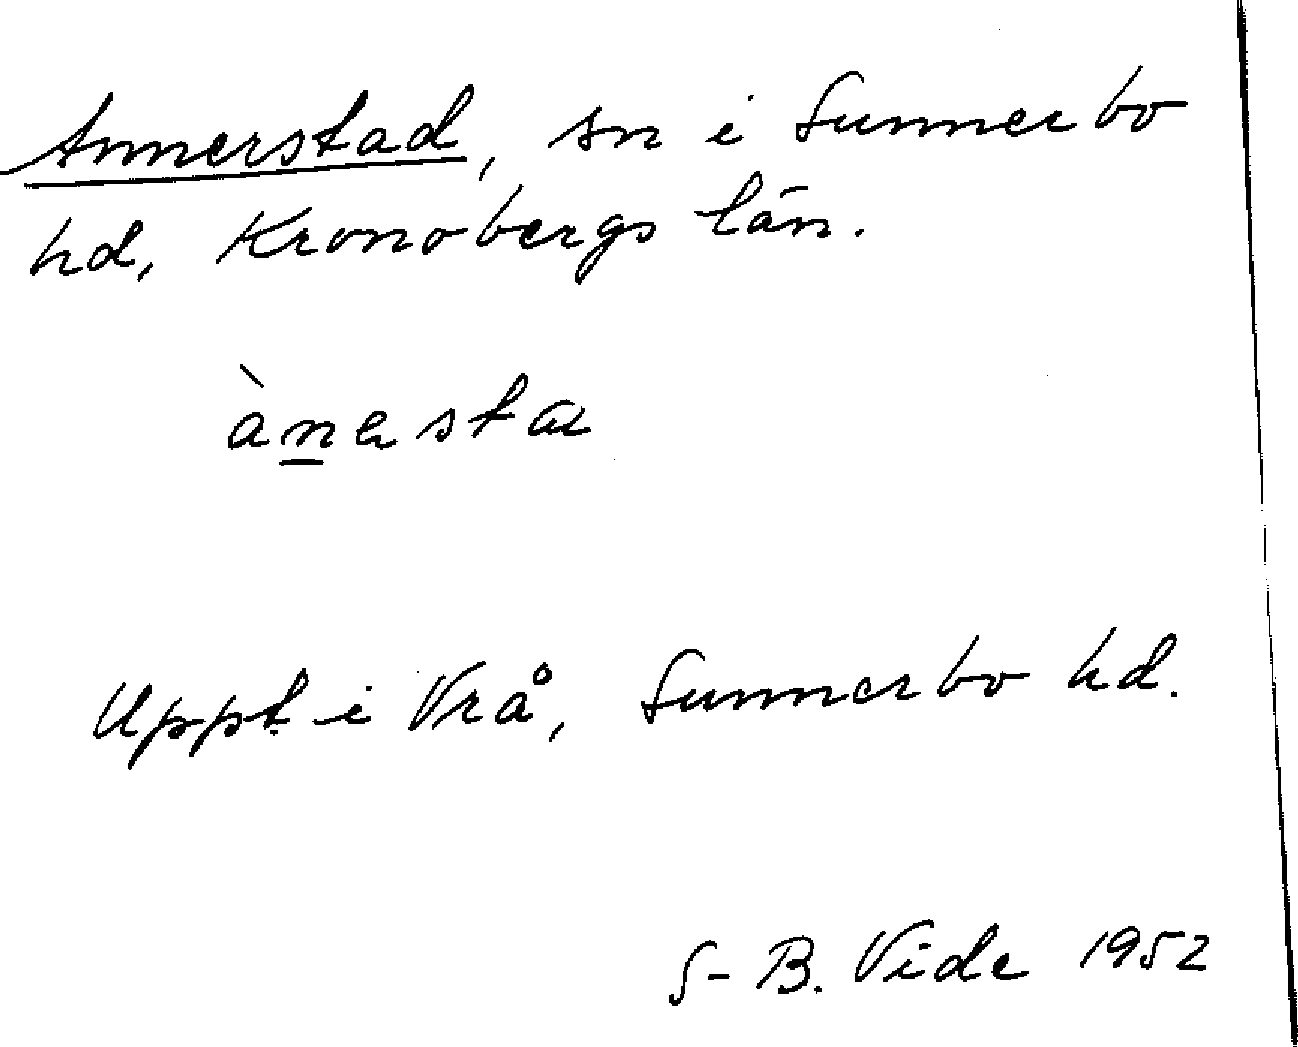 Annerstad, sn i Sunnerbo
hd, Kronobergs län.
ànesta
Uppt. i Vrå, Sunnerbo hd.
S-B. Vide 1952